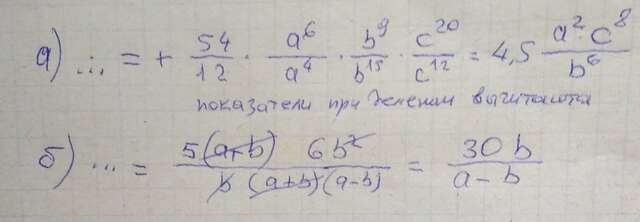 а) ... = + 54/12 · a⁶/a⁴ · b⁹/b¹⁵ · c²⁰/c¹² = 4,5 a²·c⁸/b⁶
показатели при делении вычитаются
б) ... = 5(a+b) 6b²/b (a+b)(a-b) = 30b/a-b